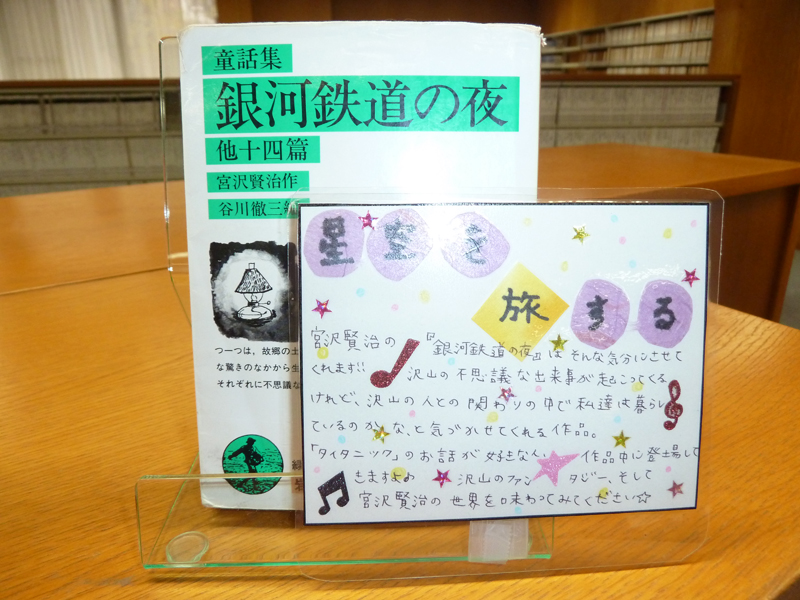 童話集
銀河鉄道の夜
他十四篇
宮沢賢治作
谷川徹三
つ一つは，故郷の土
な驚きのなかから生
それぞれに不思議な
星空を
旅する
宮沢賢治の『銀河鉄道の夜』は そんな気分にさせて
くれます!! 沢山の不思議な出来事が起こってくる
けれど、沢山の人との関わりの中で私達は暮らし
ているのかな、と気づかせてくれる作品。
「タイタニック」のお話が好きな人 作品中に登場して
きますよ♪ 沢山のファンタジー、そして
宮沢賢治の世界を味わってみてください☆